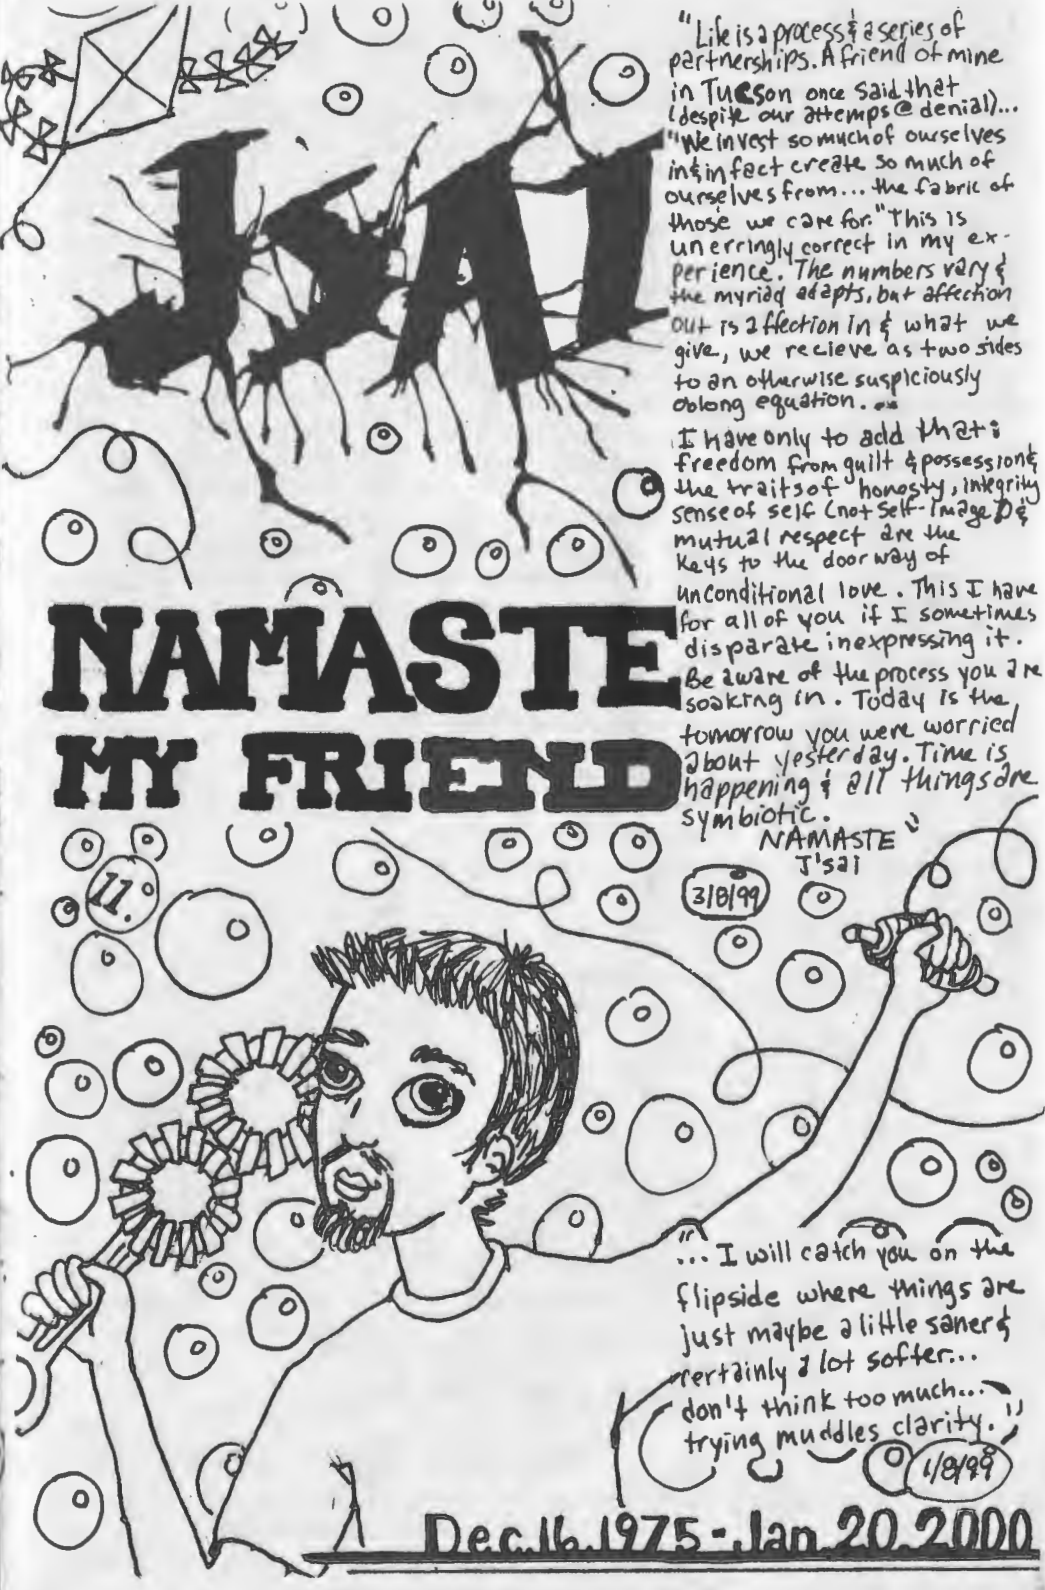 JSAI
"Life is a process & a series of
partnerships. A friend of mine
in Tucson once said that
(despite our attemps @ denial)...
"We invest so much of ourselves
in & in fact create so much of
ourselves from... the fabric of
those we care for." This is
unerringly correct in my ex-
perience. The numbers vary &
the myriad adapts, but affection
out is affection in & what we
give, we recieve as two sides
to an otherwise suspiciously
oblong equation...
I have only to add that:
freedom from guilt & possession &
the traits of honosty, integrity
sense of self (not self-image) &
mutual respect are the
keys to the doorway of
unconditional love. This I have
for all of you if I sometimes
disparate in expressing it.
Be aware of the process you are
soaking in. Today is the
tomorrow you were worried
about yesterday. Time is
happening & all things are
symbiotic.
NAMASTE"
J'sai
3/8/99
NAMASTE
MY FRIEND
11.
"... I will catch you on the
flipside where things are
just maybe a little saner &
certainly a lot softer...
don't think too much...
trying muddles clarity."
1/8/99
Dec.16.1975-Jan.20.2000